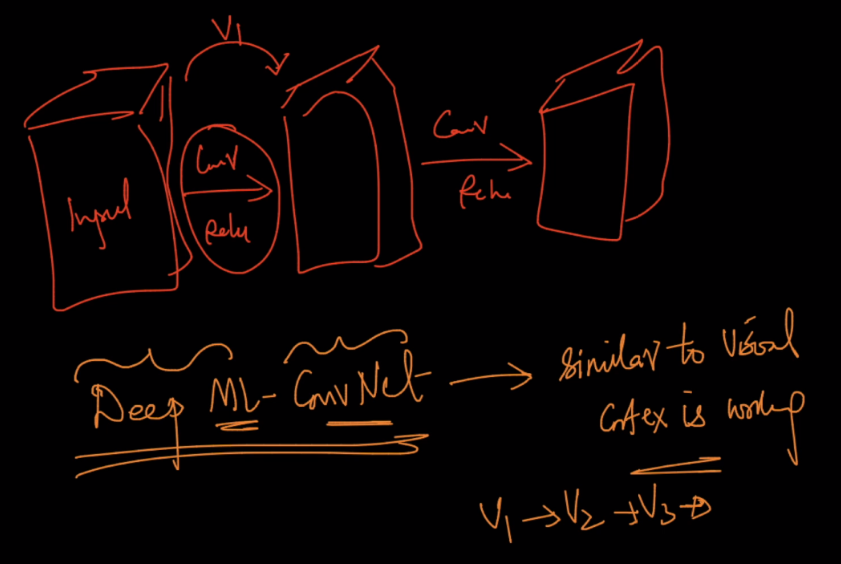 V1
Input
Conv
Relu
Conv
Relu
Deep ML-ConvNet → similar to Visual
Cortex is working
V1 → V2 → V3 →